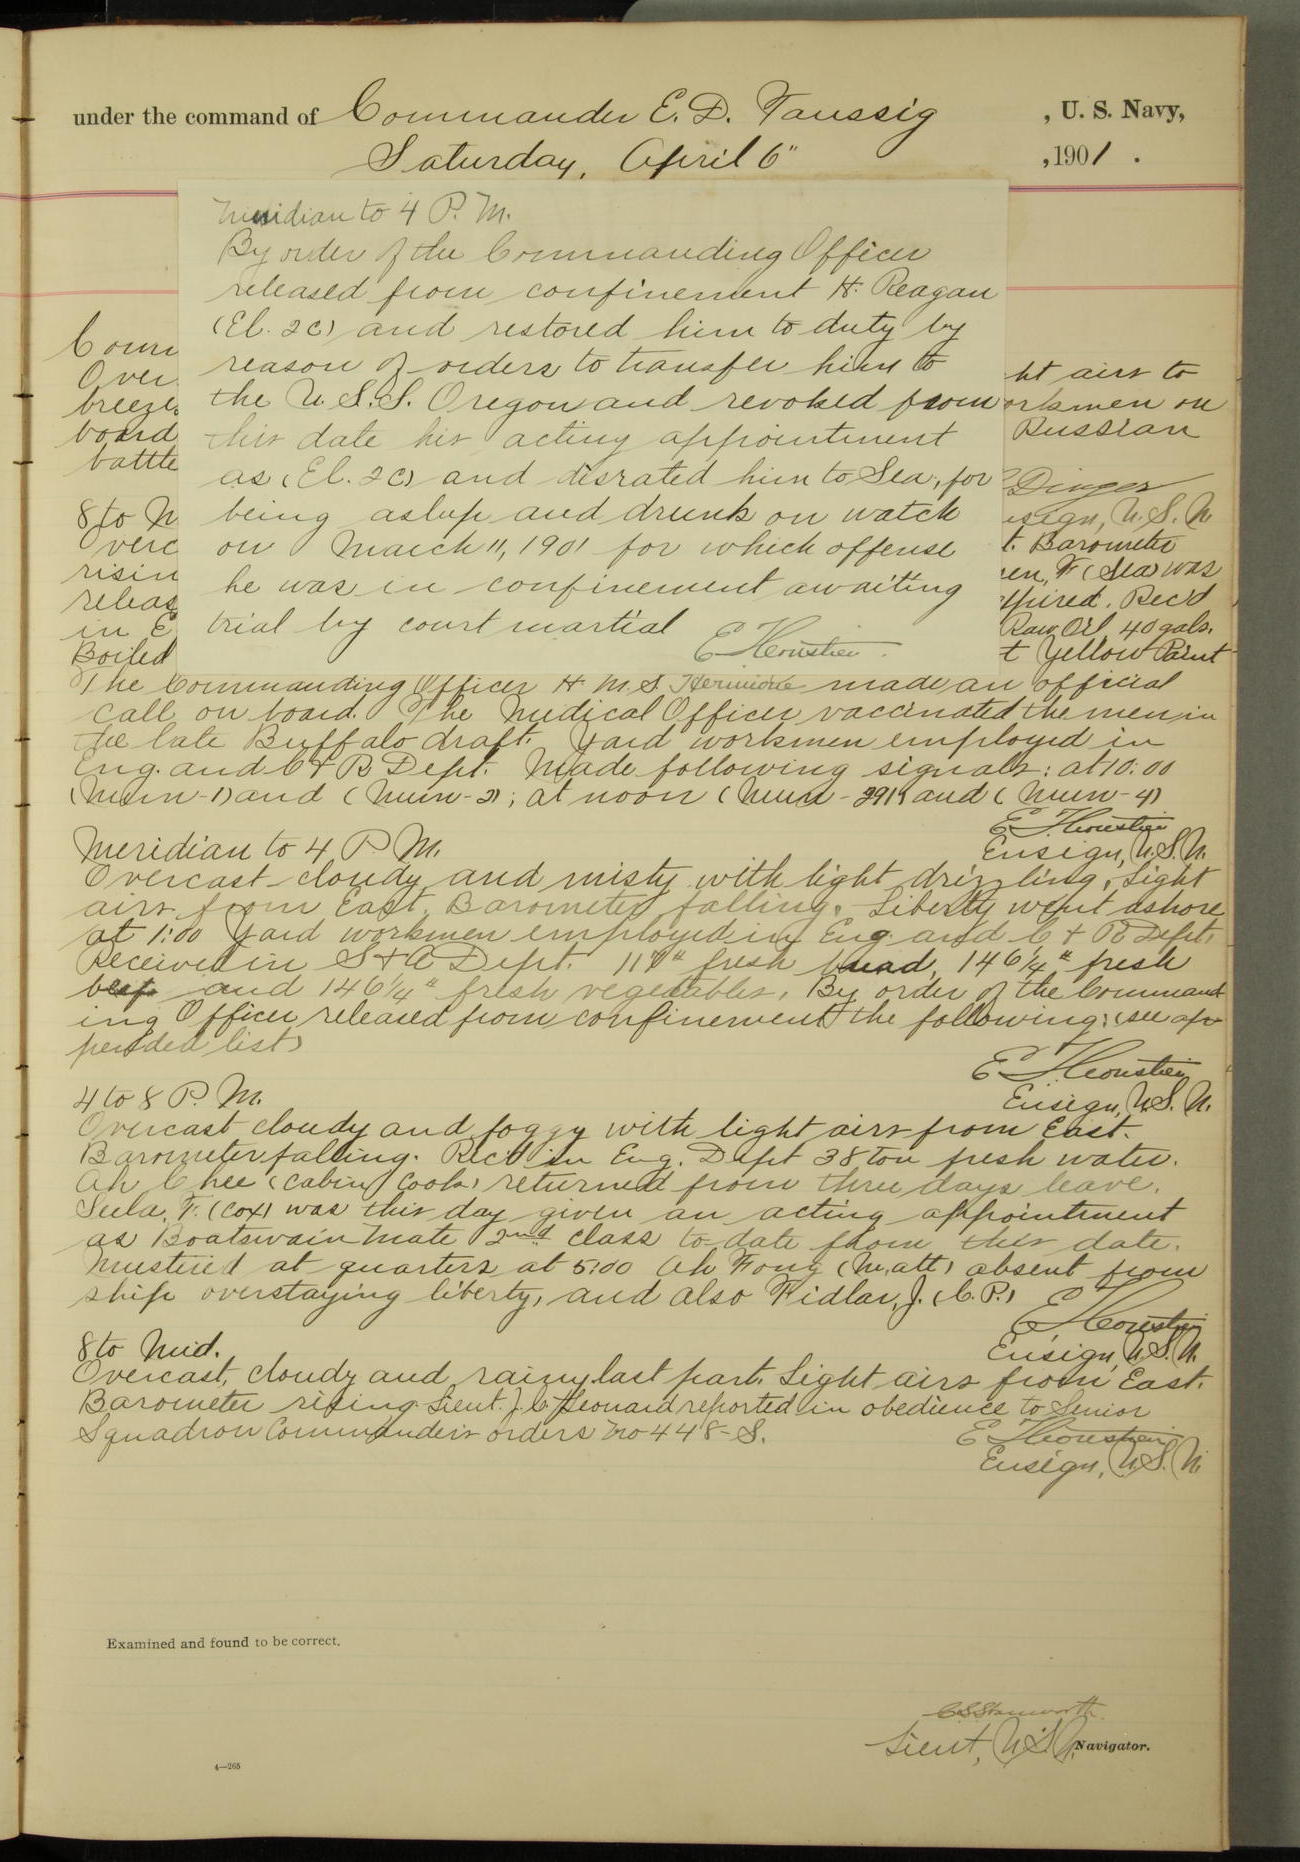 under the command of Commander E. D. Taussig , U. S. Navy,
Saturday, April 6" , 1901 .
Meridian to 4 P. M.
By order of the Commanding Officer
released from confinement H. Reagan
(El. 2C) and restored him to duty by
reason of orders to transfer him to
the U. S. S. Oregon and revoked from
this date his acting appointment
as (El. 2C) and disrated him to Sea, for
being asleep and drunk on watch
on March 11, 1901 for which offense
he was in confinement awaiting
trial by court martial
Com
Over ht airs to
breeze orkmen on
board Russian
battle
Dinger
8 to M sign, U. S. N
Overc t. Barometer
risin en, F (Sea) was
releas pired. Rec'd
in E Raw Oil 40 gals.
Boiled t Yellow Paint
The Commanding Officer H. M. S. Hermione made an official
call on board. The Medical Officer vaccinated the men in
the late Buffalo draft. Yard workmen employed in
Eng. and C & R Dept. Made following signals: at 10:00
(Num-1) and (Num-2); at noon (Num-291) and (Num-4)
Meridian to 4 P. M. Ensign, U. S. N.
Overcast cloudy and misty with light drizzling, Light
airs from East, Barometer falling. Liberty went ashore
at 1:00 Yard workmen employed in Eng and C & R Dept.
Received in S & A Dept. 117# fresh bread, 146 1/4 # fresh
beef and 146 1/4 # fresh vegetables. By order of the Command
ing Officer released from confinement the following: (see ap-
pended list)
4 to 8 P. M. Ensign, U. S. N.
Overcast cloudy and foggy with light airs from East.
Barometer falling. Rec'd in Eng. Dept 38 ton fresh water.
Ah Chee (Cabin Cook) returned from three days leave.
Seela, F. (Cox) was this day given an acting appointment
as Boatswain Mate 2nd class to date from this date.
Mustered at quarters at 5:00 Ah Fong (M. att) absent from
ship overstaying liberty, and also Fidlar, J. (C. P.)
8 to Mid. Ensign, U. S. N.
Overcast, cloudy and rainy last part. Light airs from East.
Barometer rising. Lieut. J. C. Leonard reported in obedience to Senior
Squadron Commander's orders No 448-S.
Ensign, U. S. N.
Examined and found to be correct.
C. S. Stanworth
Lieut, U. S. N. Navigator.
4—265